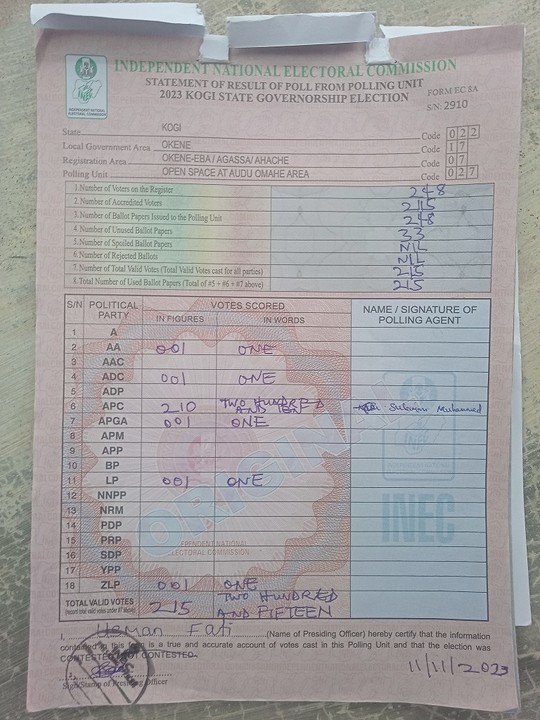 INDEPENDENT NATIONAL ELECTORAL COMMISSION
STATEMENT OF RESULT OF POLL FROM POLLING UNIT
2023 KOGI STATE GOVERNORSHIP ELECTION
FORM EC 8A
S/N: 2910
INDEPENDENT NATIONAL ELECTORAL COMMISSION
State KOGI Code 0 2 2
Local Government Area OKENE Code 1 7
Registration Area OKENE-EBA / AGASSA / AHACHE Code 0 7
Polling Unit OPEN SPACE AT AUDU OMAHE AREA Code 0 2 7
1. Number of Voters on the Register 248
2. Number of Accredited Voters 215
3. Number of Ballot Papers Issued to the Polling Unit 248
4. Number of Unused Ballot Papers 33
5. Number of Spoiled Ballot Papers NIL
6. Number of Rejected Ballots NIL
7. Number of Total Valid Votes (Total Valid Votes cast for all parties) 215
8. Total Number of Used Ballot Papers (Total of #5 + #6 + #7 above) 215
S/N POLITICAL PARTY VOTES SCORED NAME / SIGNATURE OF POLLING AGENT
IN FIGURES IN WORDS
1 A
2 AA 001 ONE
3 AAC
4 ADC 001 ONE
5 ADP
6 APC 210 TWO HUNDRED AND TEN Muhammed
7 APGA 001 ONE
8 APM
9 APP
10 BP
11 LP 001 ONE
12 NNPP
13 NRM
14 PDP
15 PRP
16 SDP
17 YPP
18 ZLP 001 ONE
TOTAL VALID VOTES 215 TWO HUNDRED AND FIFTEEN
ORIGINAL
INEC
I, Usman Fati (Name of Presiding Officer) hereby certify that the information
contained in this form is a true and accurate account of votes cast in this Polling Unit and that the election was
CONTESTED / NOT CONTESTED.
11/11/2023
Sign/Stamp of Presiding Officer